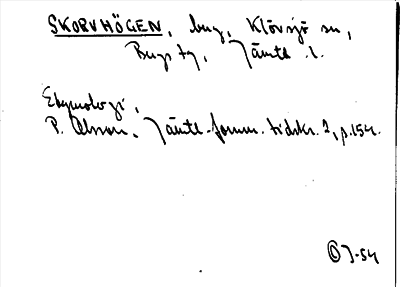 SKORVHÖGEN, berg, Klövsjö sn,
Bergs tg, Jämtl. l.
Etymologi,
P. Olsson, Jämtl. fornm. tidskr. 1, p. 154.
J-54